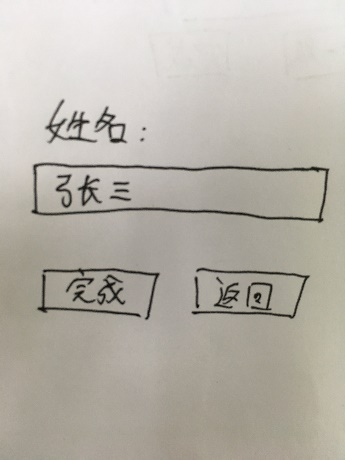 姓名:
张三
完成 返回